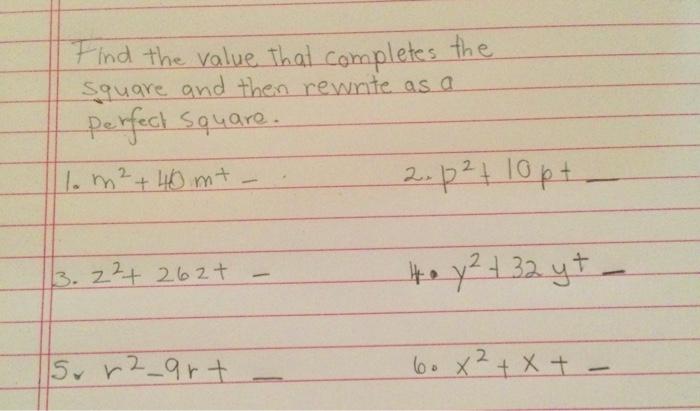 Find the value that completes the
square and then rewrite as a
perfect square.
1. m² + 40 m + _ 2. p² + 10 p + _
3. z² + 26z + _ 4. y² + 32 y + _
5. r² - 9r + _ 6. x² + x + _